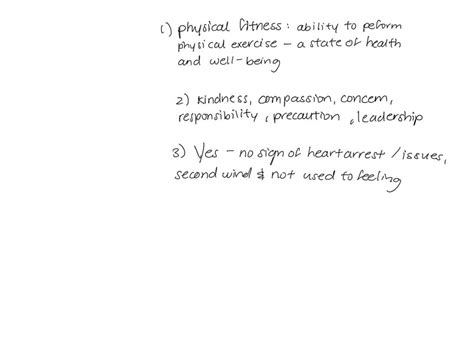 1) physical fitness: ability to peform
physical exercise – a state of health
and well-being
2) kindness, compassion, concern,
responsibility, precaution, leadership
3) Yes – no sign of heart arrest / issues,
second wind & not used to feeling